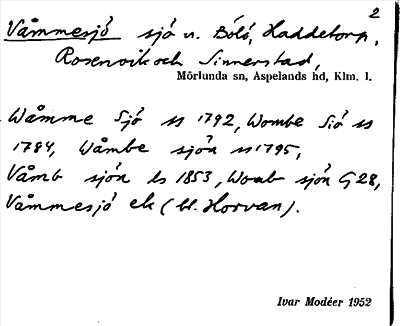 2
Våmmesjö sjö v. Bölö, Haddetorp,
Rosenvik och Sinnerstad,
Mörlunda sn, Aspelands hd, Klm. l.
Wåmme Sjö ss 1792, Wombe Siö ss
1784, Wåmbe sjön ss 1795,
Våmb sjön ls 1853, Womb sjön G 28,
Våmmesjö ek (bl. Horvan).
Ivar Modéer 1952